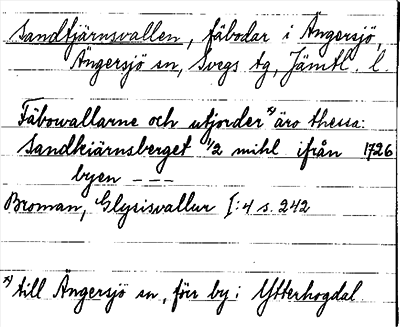 Sandtjärnsvallen, fäbodar i Ängersjö,
Ängersjö sn, Svegs tg, Jämtl. l.
Fäbowallarne och utjorder x) äro thessa:
Sandkiärnsberget 1/2 mihl ifrån 1726
byen ---
Broman, Glysisvallur I:4 s. 242
x) till Ängersjö sn, förr by i Ytterhogdal